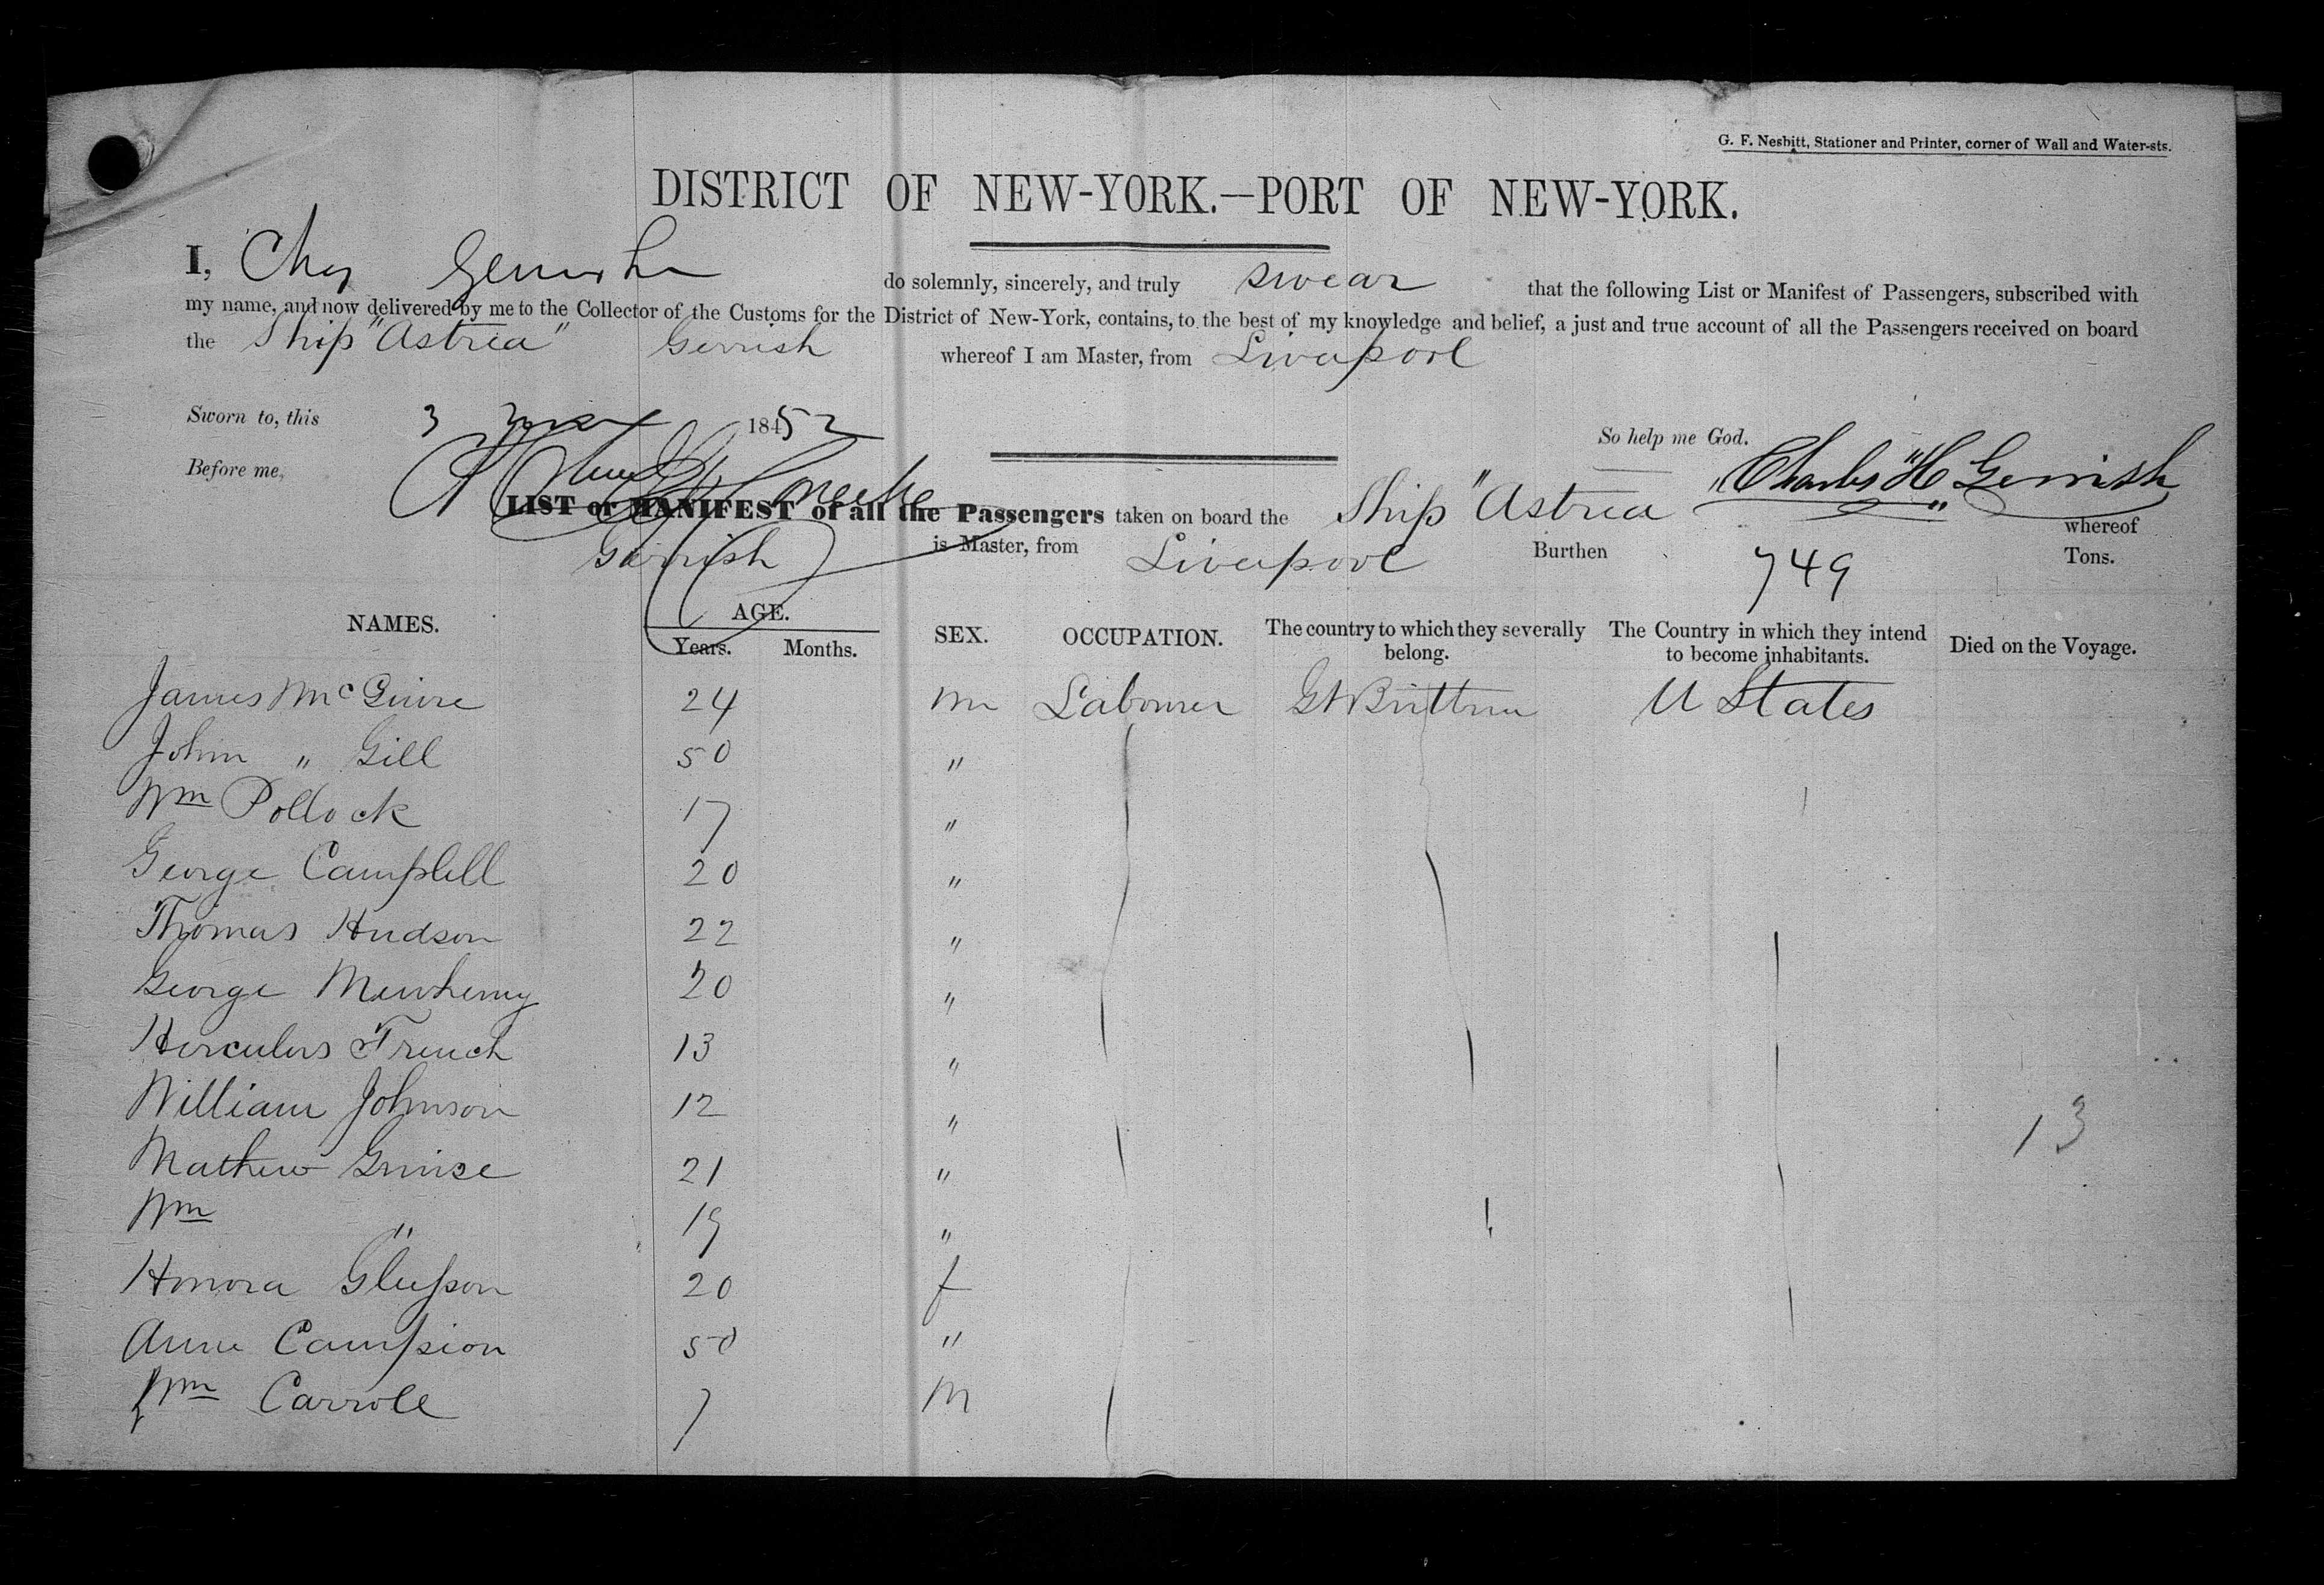 G. F. Nesbitt, Stationer and Printer, corner of Wall and Water-sts.
DISTRICT OF NEW-YORK.—PORT OF NEW-YORK.
I, Chas Gerrish do solemnly, sincerely, and truly swear that the following List or Manifest of Passengers, subscribed with
my name, and now delivered by me to the Collector of the Customs for the District of New-York, contains, to the best of my knowledge and belief, a just and true account of all the Passengers received on board
the Ship "Astrea" Gerrish whereof I am Master, from Liverpool
Sworn to, this 3 184 52
So help me God.
Before me,
"Charles "H" Gerrish
LIST or MANIFEST of all the Passengers taken on board the Ship "Astrea" whereof
Gerrish is Master, from Liverpool Burthen 749 Tons.
NAMES. AGE. SEX. OCCUPATION. The country to which they severally belong. The Country in which they intend to become inhabitants. Died on the Voyage.
Years. Months.
James McGuire 24 m Labourer Gt Brittain U States
John " Gill 50 "
Wm Pollock 17 "
George Campbell 20 "
Thomas Hudson 22 "
George Mewhenny 20 "
Herculus French 13 "
William Johnson 12 "
13
Mathew 21 "
Wm " 19 "
Honora Gleeson 20 f
Anne Campion 50 "
Wm Carroll 7 M